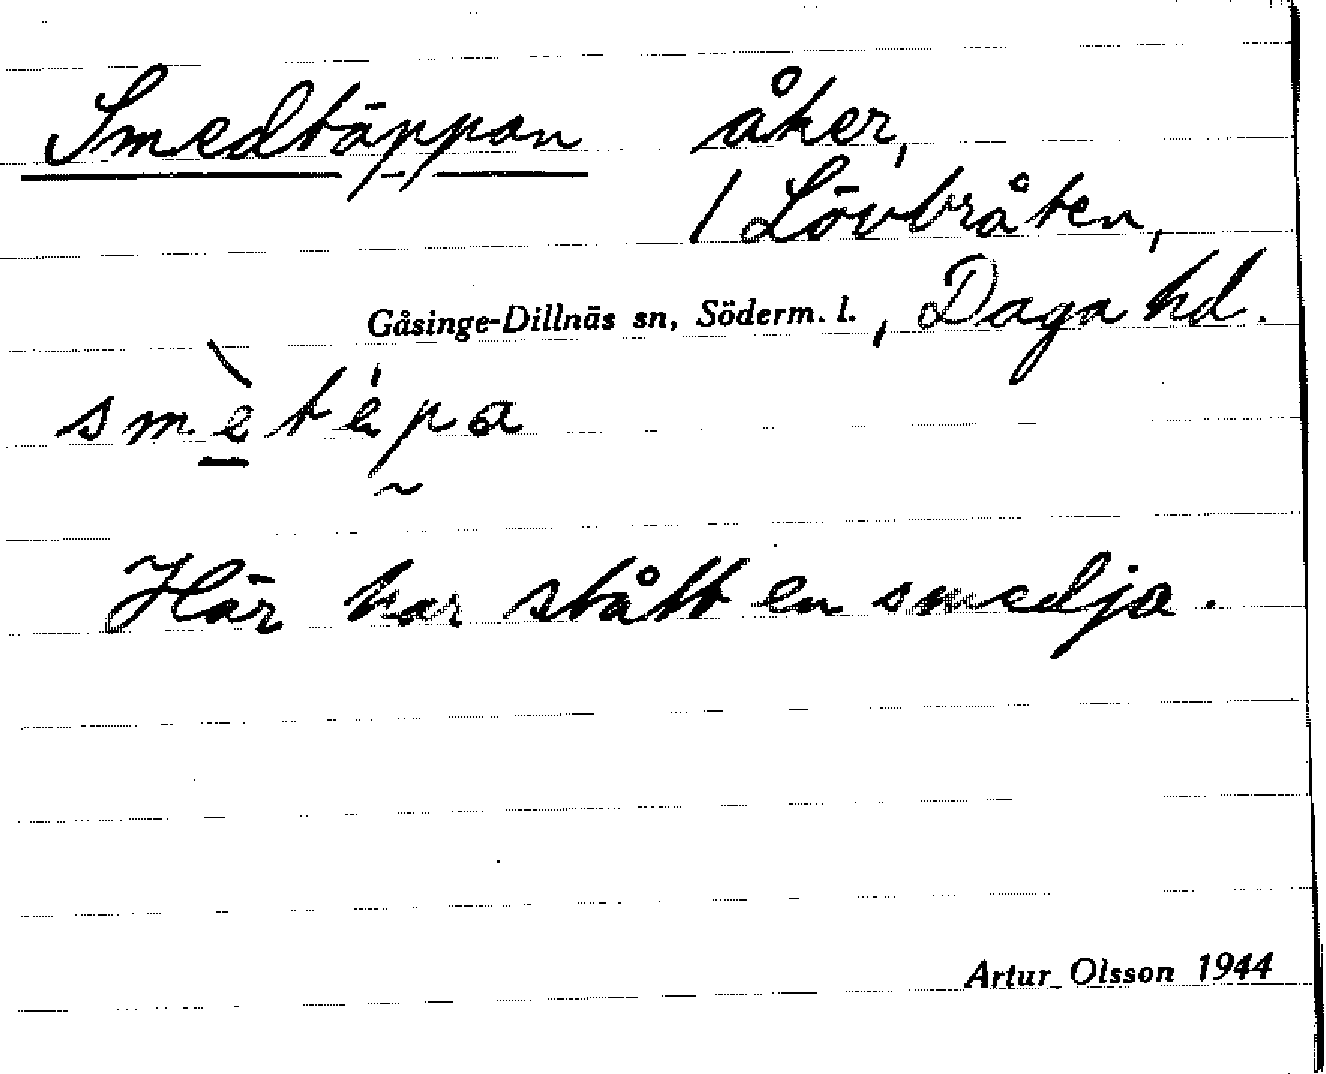 Smedtäppan åker,
/ Lövbråten,
Gåsinge-Dillnäs sn, Söderm. l. , Daga hd.
smètépa
Här har stått en smedja.
Artur Olsson 1944